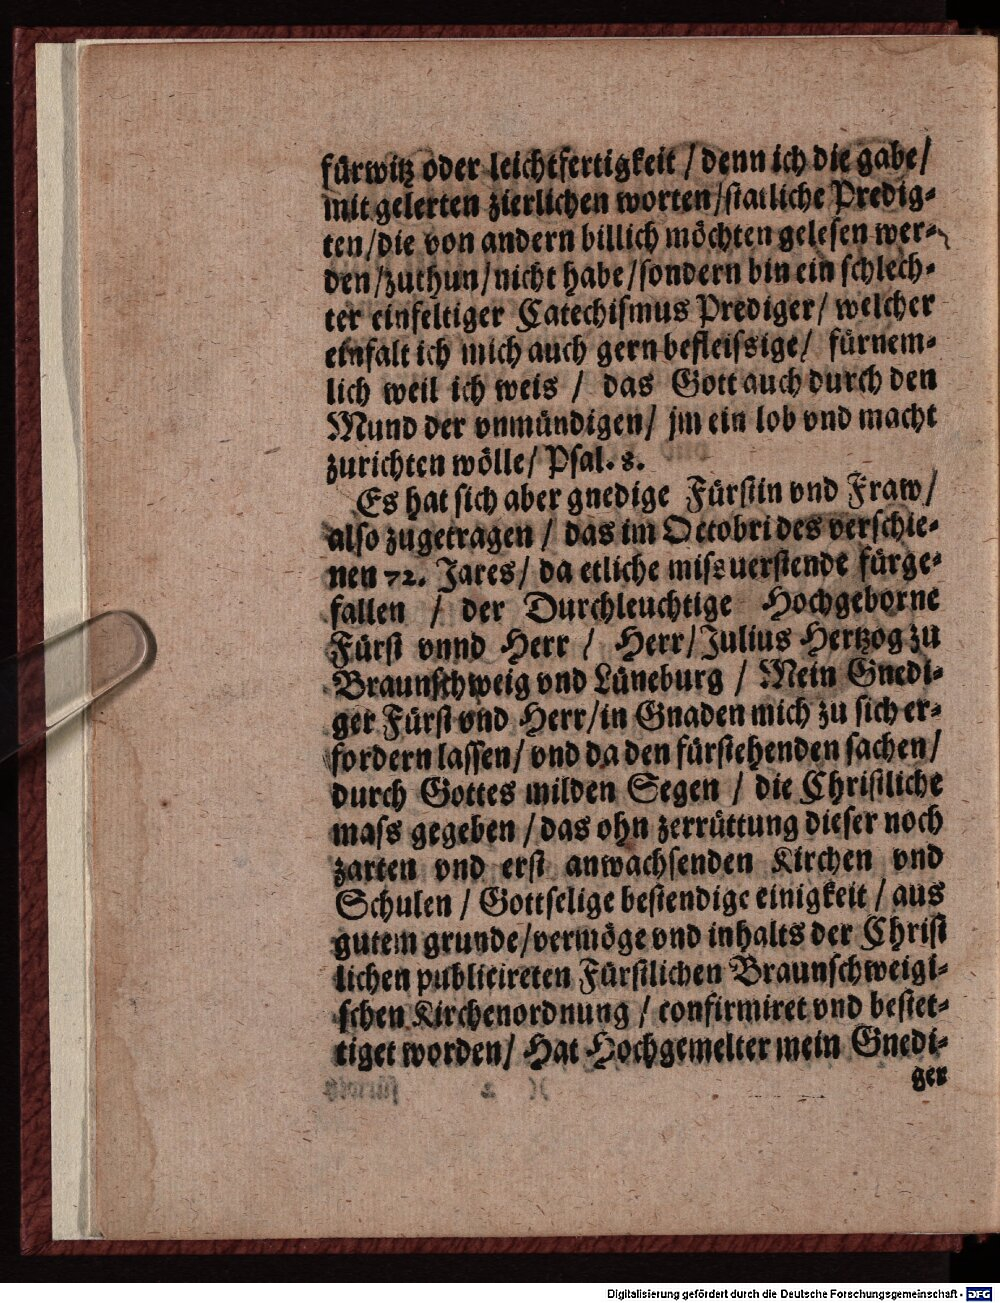 fürwitz oder leichtfertigkeit / denn ich die gabe /
mit gelerten zierlichen worten / statliche Predig-
ten / die von andern billich möchten gelesen wer-
den / zuthun / nicht habe / sondern bin ein schlech-
ter einfeltiger Catechismus Prediger / welcher
einfalt ich mich auch gern befleissige / fürnem-
lich weil ich weis / das Gott auch durch den
Mund der vnmündigen / jm ein lob vnd macht
zurichten wölle / Psal. 8.
Es hat sich aber gnedige Fürstin vnd Fraw /
also zugetragen / das im Octobri des verschie-
nen 72. Jares / da etliche missuerstende fürge-
fallen / der Durchleuchtige Hochgeborne
Fürst vnnd Herr / Herr / Julius Hertzog zu
Braunschweig vnd Lüneburg / Mein Gnedi-
ger Fürst vnd Herr / in Gnaden mich zu sich er-
fordern lassen / vnd da den fürstehenden sachen /
durch Gottes milden Segen / die Christliche
mass gegeben / das ohn zerrüttung dieser noch
zarten vnd erst anwachsenden Kirchen vnd
Schulen / Gottselige bestendige einigkeit / aus
gutem grunde / vermöge vnd inhalts der Christ
lichen publicireten Fürstlichen Braunschweigi-
schen Kirchenordnung / confirmiret vnd bestet-
tiget worden / Hat Hochgemelter mein Gnedi-
ger
Digitalisierung gefördert durch die Deutsche Forschungsgemeinschaft - DFG